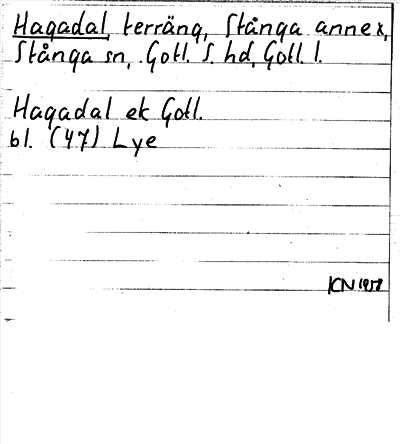 Hagadal, terräng, Stånga annex,
Stånga sn, Gotl. S. hd, Gotl. l.
Hagadal ek Gotl.
bl. (47) Lye
KCN 1958